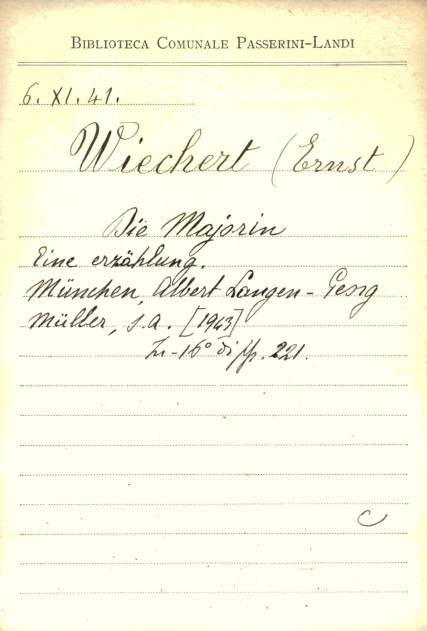 BIBLIOTECA COMUNALE PASSERINI-LANDI
6. XI. 41.
Wiechert (Ernst)
Die Majorin
Eine erzählung.
München, Albert Langen - Georg
Müller, s.a. [1943]
In-16° di pp. 221.
C